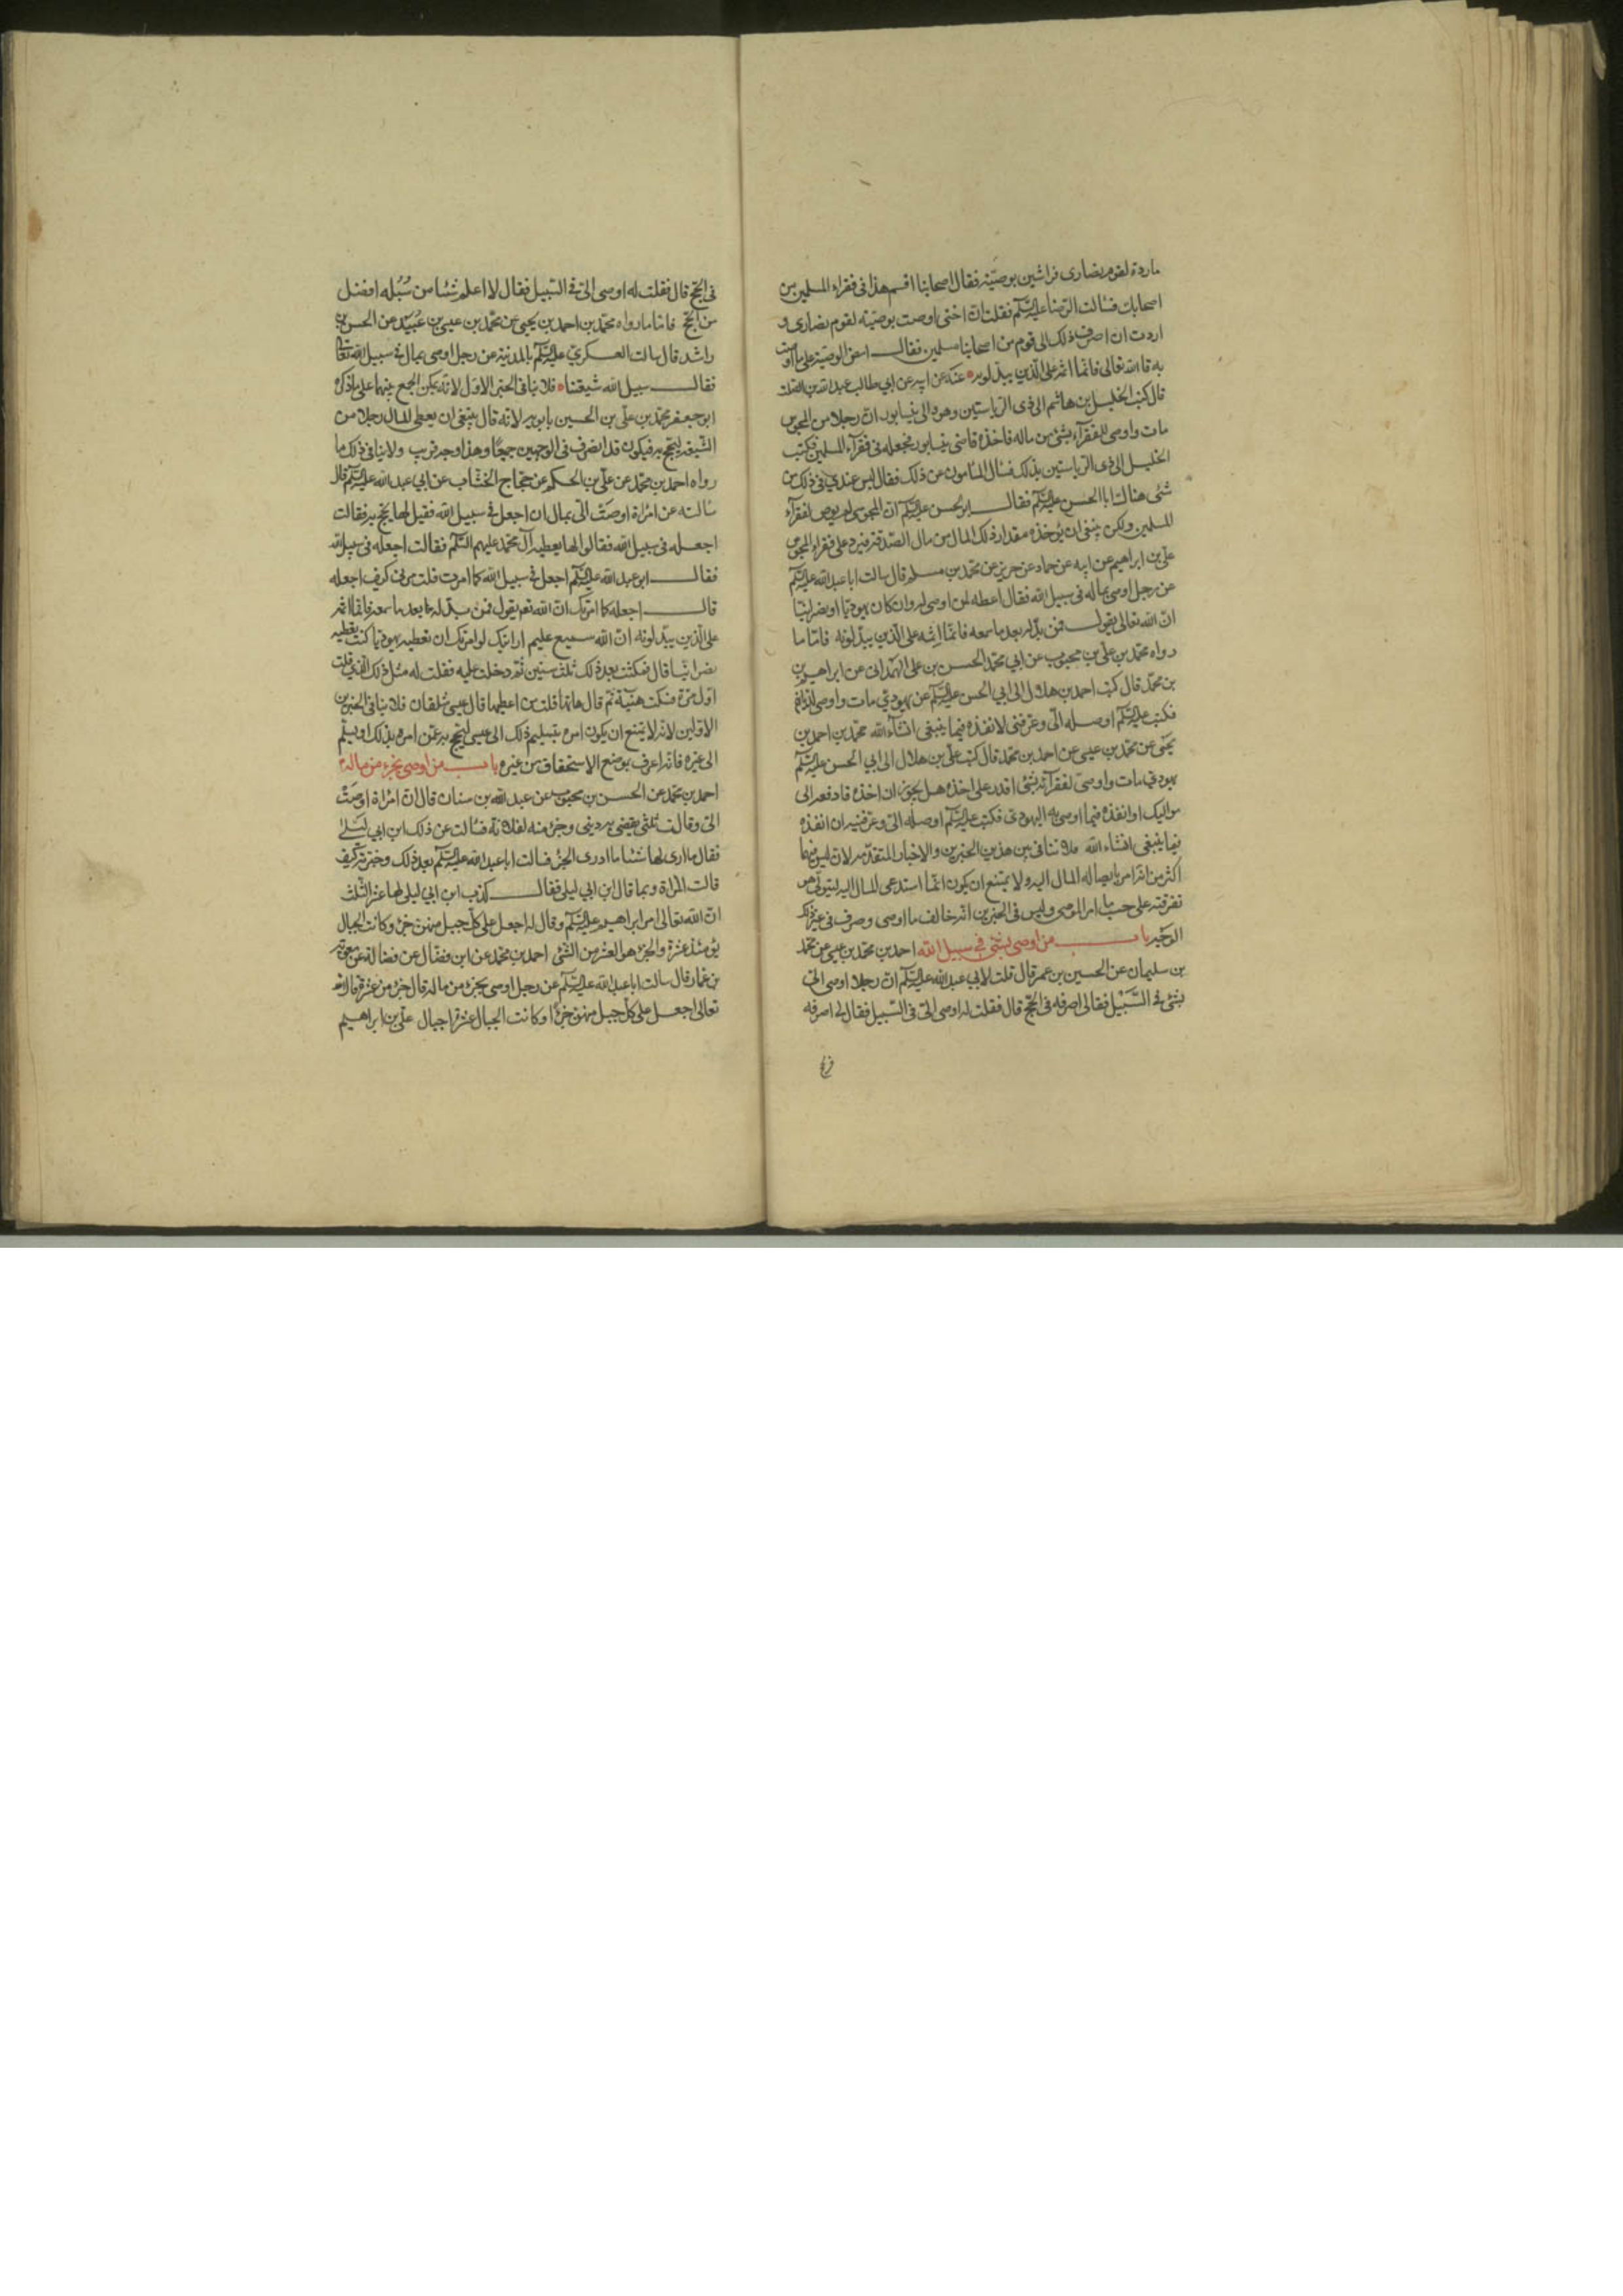 ماردة لقوم نصارى فراشين بوصيّته فقال اصحابنا اقسم هذا فى فقراء المسلمين من
اصحابك فسالت الرّضا عليه السّلم فقلت انّ اختى اوصت بوصيّته لقوم نصارى و
اردت ان اصرف ذلك الى قوم من اصحابنا مسلمين فقالـ امض الوصيّة على ما اوصت
به قال الله تعالى فانّما اثمه على الّذين يبدّلونه عنه عن ابيه عن ابي طالب عبدالله بن الصّلت
قال كتب الخليل بن هاشم الى ذى الرّياستين وهو والى نيسابور انّ رجلا من المجوس
مات واوصى للفقرآء بشئ من ماله فاخذه قاضى نيسابور فجعله فى فقرآء المسلمين فكتب
الخليل الى ذى الرّياستين بذلك فسال المامون عن ذلك فقال ليس عندي فى ذلك من
شئ فسالت ابا الحسن عليه السّلم فقالـ ابو الحسن عليه السّلم انّ المجوسى لم يوص لفقرآء
المسلمين ولكن ينبغى ان يؤخذ مقدار ذلك المال من مال الصّدقة فيرد على فقراء المجوس
علي بن ابراهيم عن ابيه عن حماد عن حريز عن محمّد بن مسلم قال سالت ابا عبدالله عليه السّلم
عن رجل اوصى بماله فى سبيل الله فقال اعطه لمن اوصى له وان كان يهوديّا او نصرانيّا
انّ الله تعالى يقولـ فمن بدّله بعد ما سمعه فانّما اثمه على الّذين يبدّلونه فامّا ما
رواه محمّد بن علي بن محبوب عن ابي محمّد الحسن بن على الهمدانى عن ابراهيم بن
بن محمّد قال كتب احمد بن هلال الى ابي الحسن عليه السّلم عن يهودي مات واوصى لديّانهم
فكتب عليه السّلم اوصله الىّ وعرّفنى لانفذه فيما ينبغى انشآء الله محمّد بن احمد بن
يحيى عن محمّد بن عيسى عن احمد بن محمّد قال كتب علي بن هلال الى ابي الحسن عليه السّلم
يهودي مات واوصى لفقرآئه بشئ اقدر على اخذه هل يجوز ان اخذه فادفعه الى
مواليك او انفذه فيما اوصى به اليهودى فكتب عليه السّلم اوصله الىّ وعرّفنيه ان انفذه
فيما ينبغى انشاء الله فلا تنافى بين هذين الخبرين والاخبار المتقدّمه لان ليس فيهما
اكثر من انّه امر بايصاله المال اليه ولا يمتنع ان يكون انّما استدعى المال اليه ليتولّى هو
تفرقته على حسب ما امر الموصى وليس فى الخبرين انّه خالف ما اوصى وصرف فى غير ذلك
الوجه بابـ من اوصى بشئ فى سبيل الله احمد بن محمّد بن عيسى عن محمّد
بن سليمان عن الحسين بن عمر قال قلت لابي عبدالله عليه السّلم انّ رجلا اوصى الىّ
بشئ فى السّبيل فقال لى اصرفه فى الحجّ قال فقلت له اوصى الىّ فى السّبيل فقال لى اصرفه
فى الحجّ قال فقلت له اوصى الىّ فى السّبيل فقال لا اعلم شئا من سُبُله افضل
من الحجّ فامّا ما رواه محمّد بن احمد بن يحيى عن محمّد بن عيسى بن عُبيد عن الحسن بن
راشد قال سالت العسكريّ عليه السّلم بالمدينة عن رجل اوصى بمال فى سبيل الله تعالى
فقالـ سبيل الله شيعتنا فلا ينافى الخبر الاوّل لانّه يمكن الجمع بينهما على ما ذكره
ابو جعفر محمّد بن علي بن الحسين بابويه لانّه قال ينبغى ان يعطى المال رجلا من
الشّيعه ليحجّ به فيكون قد انصرف فى الوجهين جميعًا وهذا وجه قريب ولا ينافى ذلك ما
رواه احمد بن محمّد عن علي بن الحكم عن حجّاج الخشّاب عن ابي عبدالله عليه السّلم قال
سالته عن امرأة اوصَت الىّ بمال ان اجعل فى سبيل الله فقيل لها يحجّ به فقالت
اجعله فى سبيل الله فقالوا لها يعطيه آل محمّد عليهم السّلم فقالت اجعله فى سبيل الله
فقالـ ابو عبدالله عليه السّلم اجعل فى سبيل الله كما امرت قلت مرنى كيف اجعله
قالـ اجعله كما امرتك انّ الله تعم يقول فمن بدّله بعد ما سمعه فانّما اثمه
على الّذين يبدّلونه انّ الله سميع عليم ارايتك لو امرتك ان تعطيه يهوديّا كنت تعطيه
نصرانيّا قال فمكثت بعد ذلك ثلث سنين ثم دخلت عليه فقلت له مثل ذلك الّذي قلت
اوّل مرّة فسكت هنيئة ثمّ قال هاتها قلت من اعطيها قال عيسى شلقان فلا ينافى الخبرين
الاوّلين لانّه لا يمتنع ان يكون امره بتسليم ذلك الى عيسى ليحجّ به عمّن امره بذلك او يسلّم
الى غيره فانّه اعرف بموضع الاستحقاق من غيره بابـ من اوصى بجزء من ماله
احمد بن محمّد عن الحسن بن محبوب عن عبدالله بن سنان قال انّ امرأة اوصَتْ
الىّ وقالت ثلثى يقضى به دينى وجزء منه لفلانة فسالت عن ذلك ابن ابي ليلى
فقال ما ارى لها شئا ما ادرى الجزء فسالت ابا عبدالله عليه السّلم بعد ذلك وخبّرته كيف
قالت المراة وبما قال ابن ابي ليلى فقالـ كذب ابن ابي ليلى لها عشر الثّلث
انّ الله تعالى امر ابراهيم عليه السّلم وقال له اجعل على كلّ جبل منهنّ جزء وكانت الجبال
يومئذ عشرة والجزء هو العشر من الشّئ احمد بن محمّد عن ابن فضّال عن ثعلبة عن معوية
بن عمّار قال سالت ابا عبدالله عليه السّلم عن رجل اوصى بجزء من ماله قال جزء من عشرة قال الله
تعالى اجعل على كلّ جبل منهنّ جزءًا وكانت الجبال عشرة اجبال علي بن ابراهيم